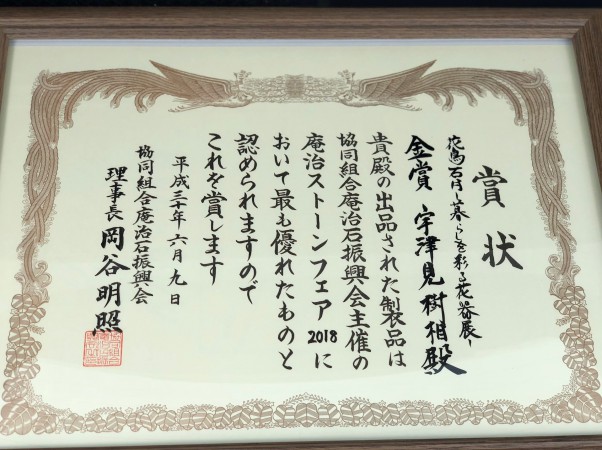 賞状
花鳥石月〜暮らしを彩る花器展〜
金賞 宇津見樹相殿
貴殿の出品された製品は
協同組合庵治石振興会主催の
庵治ストーンフェア2018に
おいて最も優れたものと
認められますので
これを賞します
平成三十年六月九日
協同組合庵治石振興会
理事長 岡谷明照